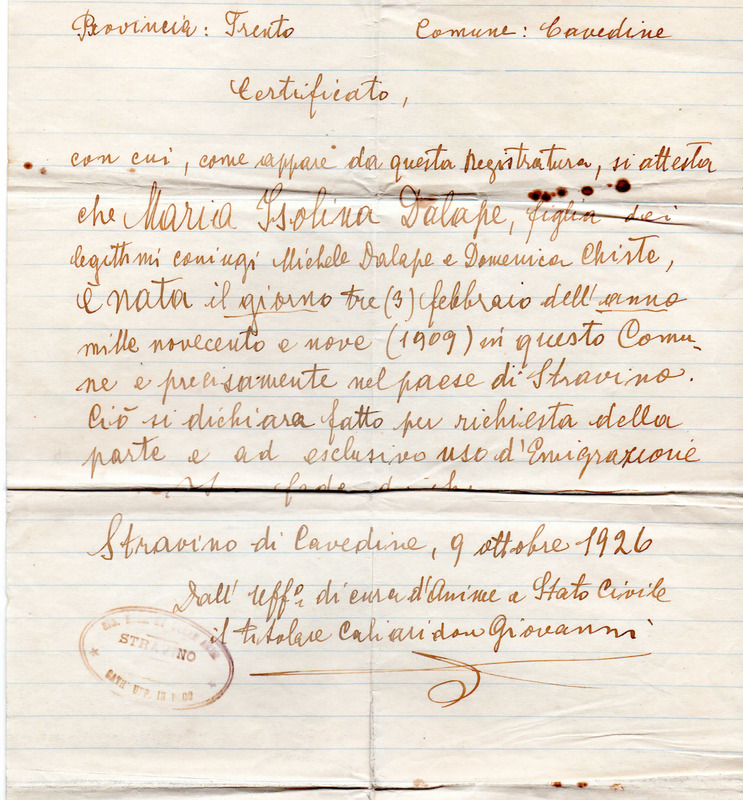 Provincia: Trento Comune: Cavedine
Certificato,
con cui, come appare da questa registratura, si attesta
che Maria Isolina Dalape, figlia dei
legittimi coniugi Michele Dalape e Domenica Chiste,
è nata il giorno tre (3) febbraio dell' anno
mille novecento e nove (1909) in questo Comu-
ne e precisamente nel paese di Stravino.
Ciò si dichiara fatto per richiesta della
parte e ad esclusivo uso d'Emigrazione
fede di che
Stravino di Cavedine, 9 ottobre 1926
Dall' Uff° di cura d'Anime e Stato Civile
il titolare Caliari don Giovanni
STRAVINO